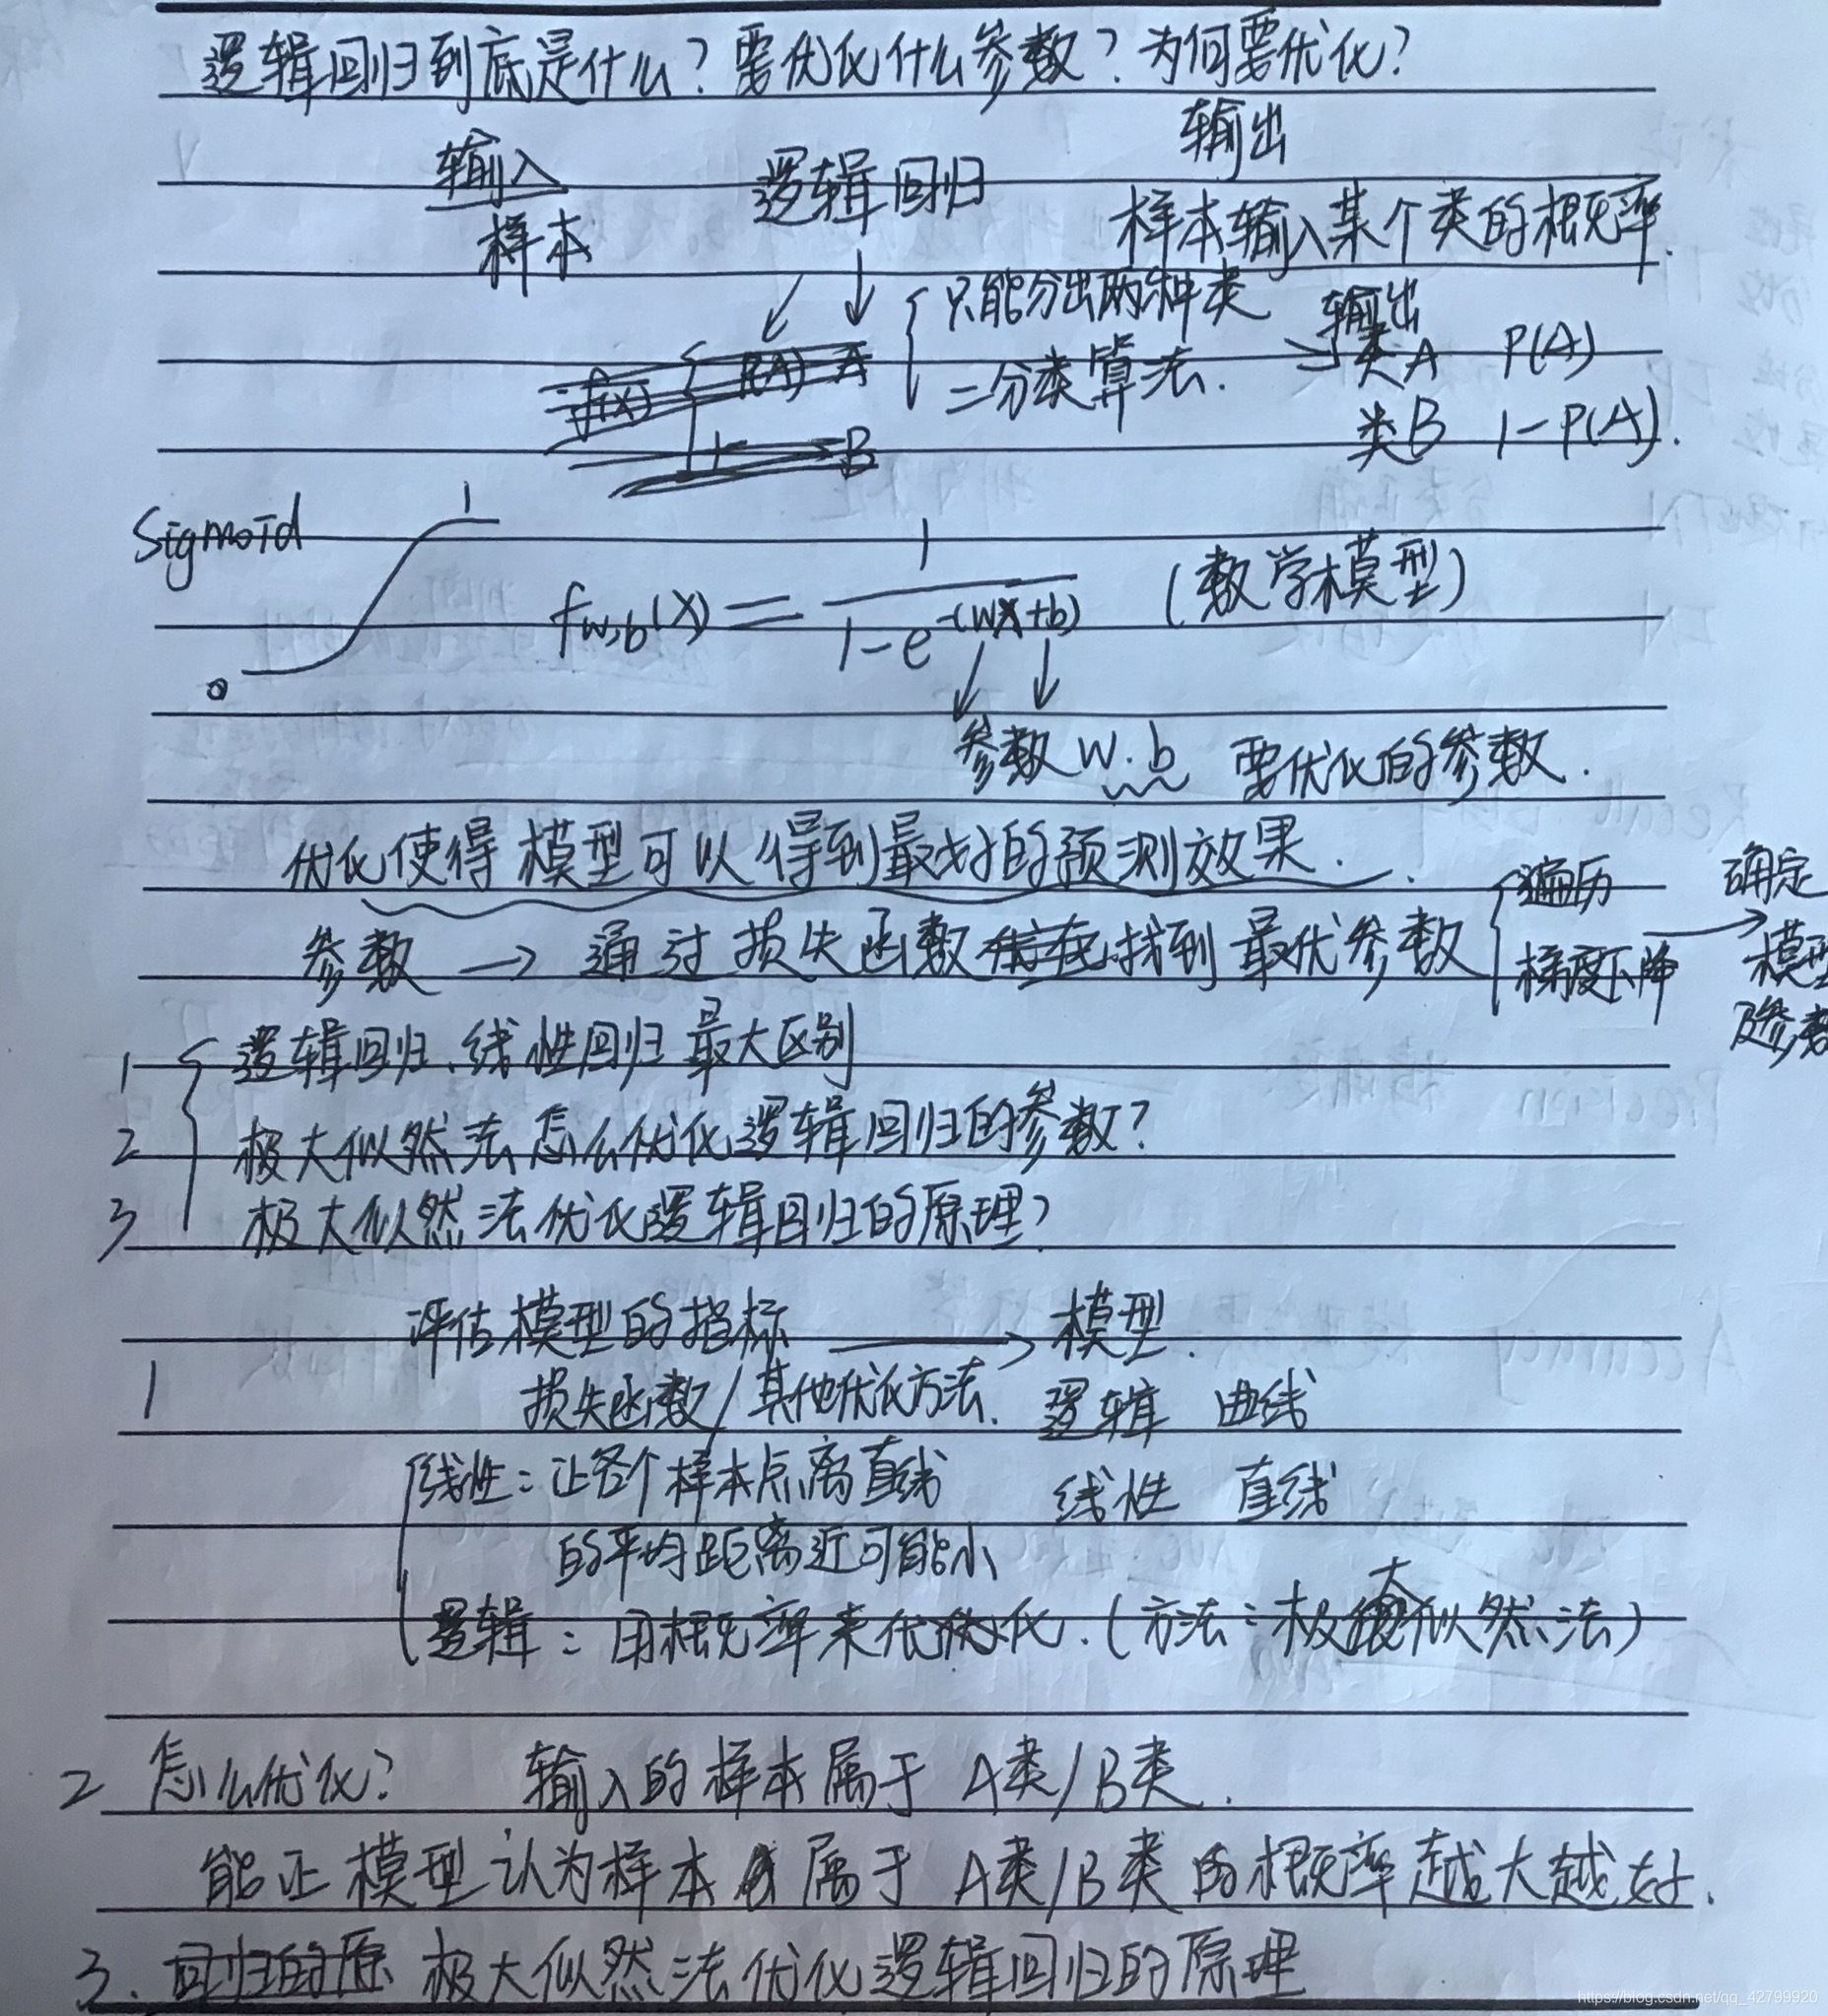 逻辑回归到底是什么？要优化什么参数？为何要优化？
输入 逻辑回归 输出
样本 样本输入某个类的概率.
只能分出两种类 输出
f(x) P(A) A 二分类算法. 类A P(A)
B 类B 1-P(A).
Sigmoid 1
0 fw,b(x) = 1 / 1-e^-(wx+b) (数学模型)
参数 w.b 要优化的参数.
优化使得模型可以得到最好的预测效果.
参数 → 通过损失函数找到最优参数 遍历 梯度下降 → 确定模型及参数
1 逻辑回归、线性回归最大区别
2 极大似然法怎么优化逻辑回归的参数?
3 极大似然法优化逻辑回归的原理?
评估模型的指标 → 模型.
1 损失函数/其他优化方法. 逻辑 曲线
线性: 让各个样本点离直线 线性 直线
的平均距离近可能小
逻辑: 用概率来优化. (方法: 极大似然法)
2 怎么优化? 输入的样本属于 A类/B类.
能正模型认为样本属于 A类/B类的概率越大越好.
3. 回归的原 极大似然法优化逻辑回归的原理
https://blog.csdn.net/qq_42799920